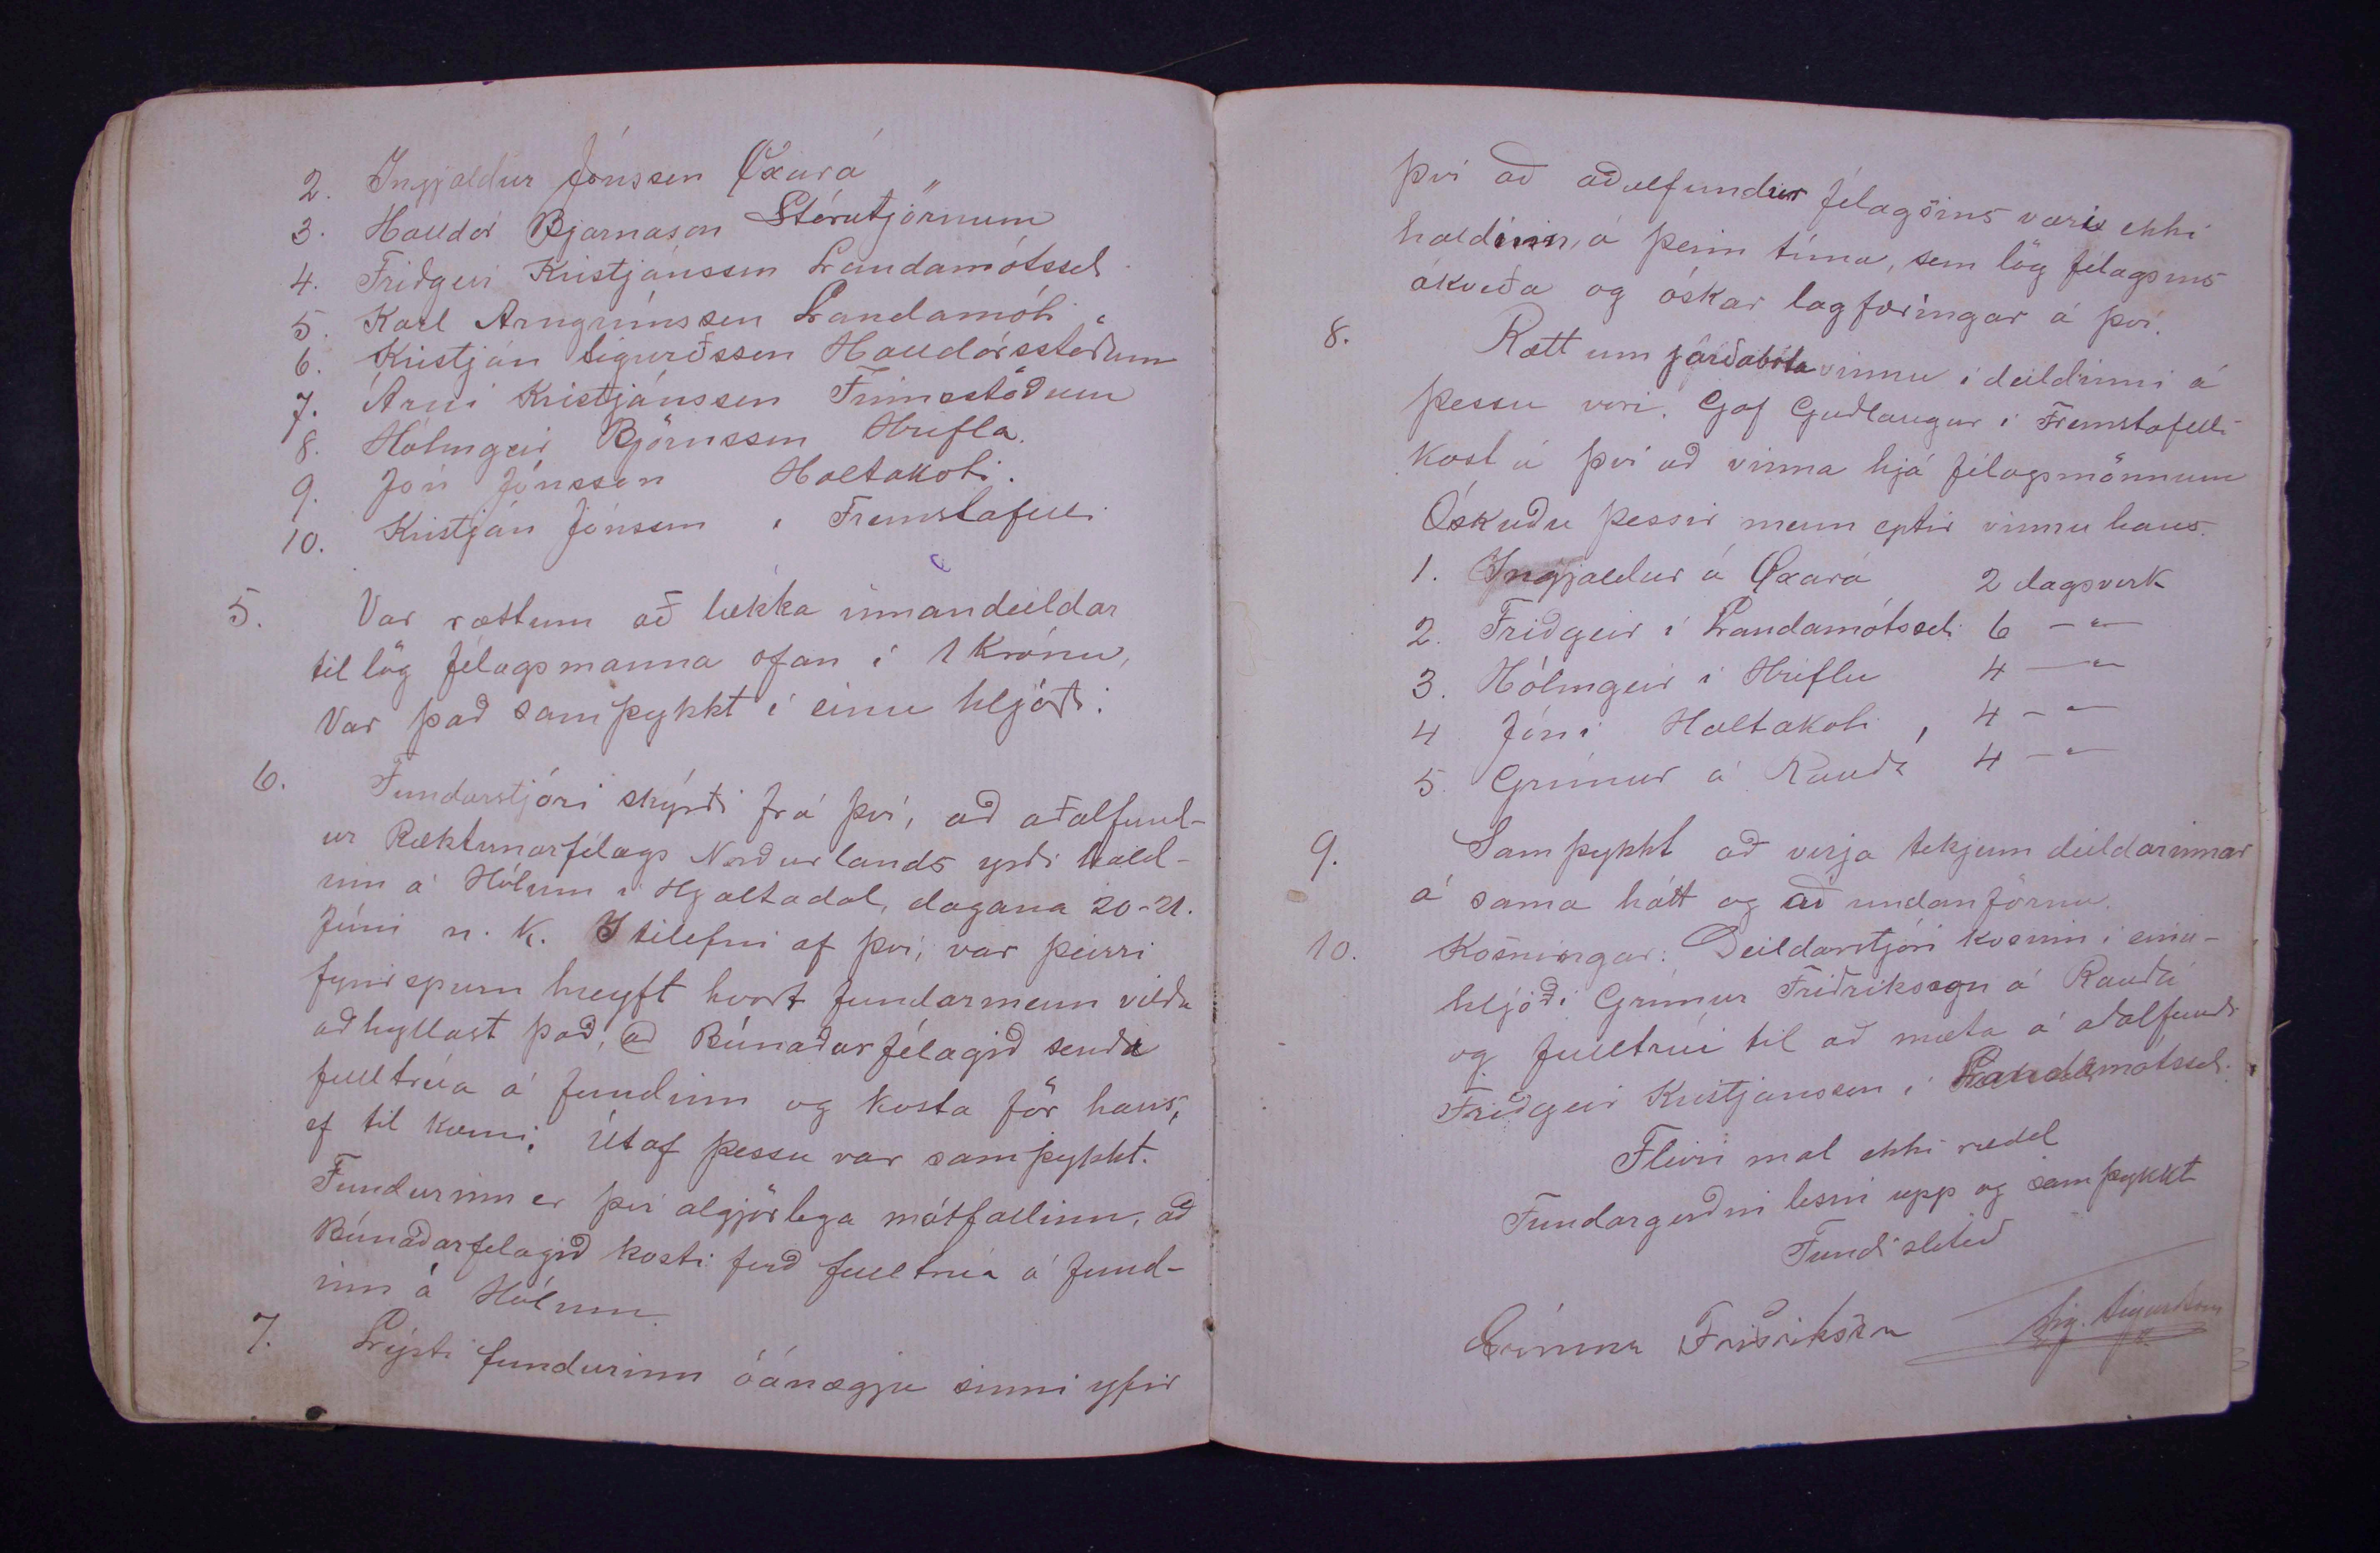 2. Ingjaldur Jónsson Öxará
3. Halldór Bjarnason Stórutjörnum
4. Friðgeir Kristjánsson Landamótssel
5. Karl Arngrímsson Landamóti
6. Kristján Sigurðsson Halldórsstöðum
7. Árni Kristjánsson Finnsstöðum
8. Hólmgeir Björnsson Hrifla.
9. Jón Jónsson Holtakoti.
10. Kristján Jónsson í Fremstafelli
5. Var rætt um að lækka innandeildar
tillög félagsmanna ofan í 1 Krónu,
Var það samþykkt í einu hljóði.
6. Fundarstjóri skýrði frá því, að aðalfund-
ur Ræktunarfélags Norðurlands yrði hald-
inn á Hólum í Hjaltadal, dagana 20-21.
Júní n.k. I tilefni af því, var þeirri
fyrirspurn hreyft hvort fundarmenn vildu
aðhyllast það, að Búnaðarfélagið sendi
fulltrúa á fundinn og kosta för hans,
ef til kæmi. Útaf þessu var samþykkt.
Fundurinn er því algjörlega mótfallinn, að
Búnaðarfelagið kosti ferð fulltrúa á fund-
inn á Hólum
7. Lýsti fundurinn óánægju sinni yfir
því að aðalfundur félagsins væri ekki
haldinn, á þeim tíma, sem lög félagsins
ákveða og óskar lagfæringar á því.
8. Rætt um jarðabóta vinnu í deildinni á
þessu vori. Gaf Guðlaugur í Fremstafelli
kost á því að vinna hjá félagsmönnum
Óskuðu þessir menn eptir vinnu hans.
1. Ingjaldur á Öxará 2 dagsverk
2. Friðgeir í Landamótsseli 6 -"-
3. Hólmgeir í Hriflu 4 -"-
4 Jón í Holtakoti, 4 -"-
5. Grímur á Rauðá 4 -"-
9. Samþykkt að verja tekjum deildarinnar
á sama hátt og að undanförnu.
10. Kosningar: Deildarstjóri kosinn í einu-
hljóði Grímur Friðriksson á Rauðá
og fulltrúi til að mæta á aðalfundi
Friðgeir Kristjansson í Landamótsseli.
Fleiri mal ekki rædd
Fundargerðin lesin upp og samþykkt
Fundi slitið
Grímur Friðriksson Sig. Sigurðsson